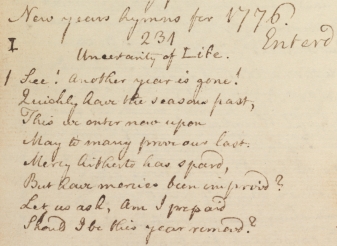 New years hymns for 1776.
I 231 Enterd
Uncertainty of Life.
1 See! Another year is gone!
Quickly have the seasons past,
This we enter now upon
May to many prove our last.
Mercy hitherto has spard,
But have mercies been improv'd?
Let us ask, Am I prepard
Should I be this year remov'd?